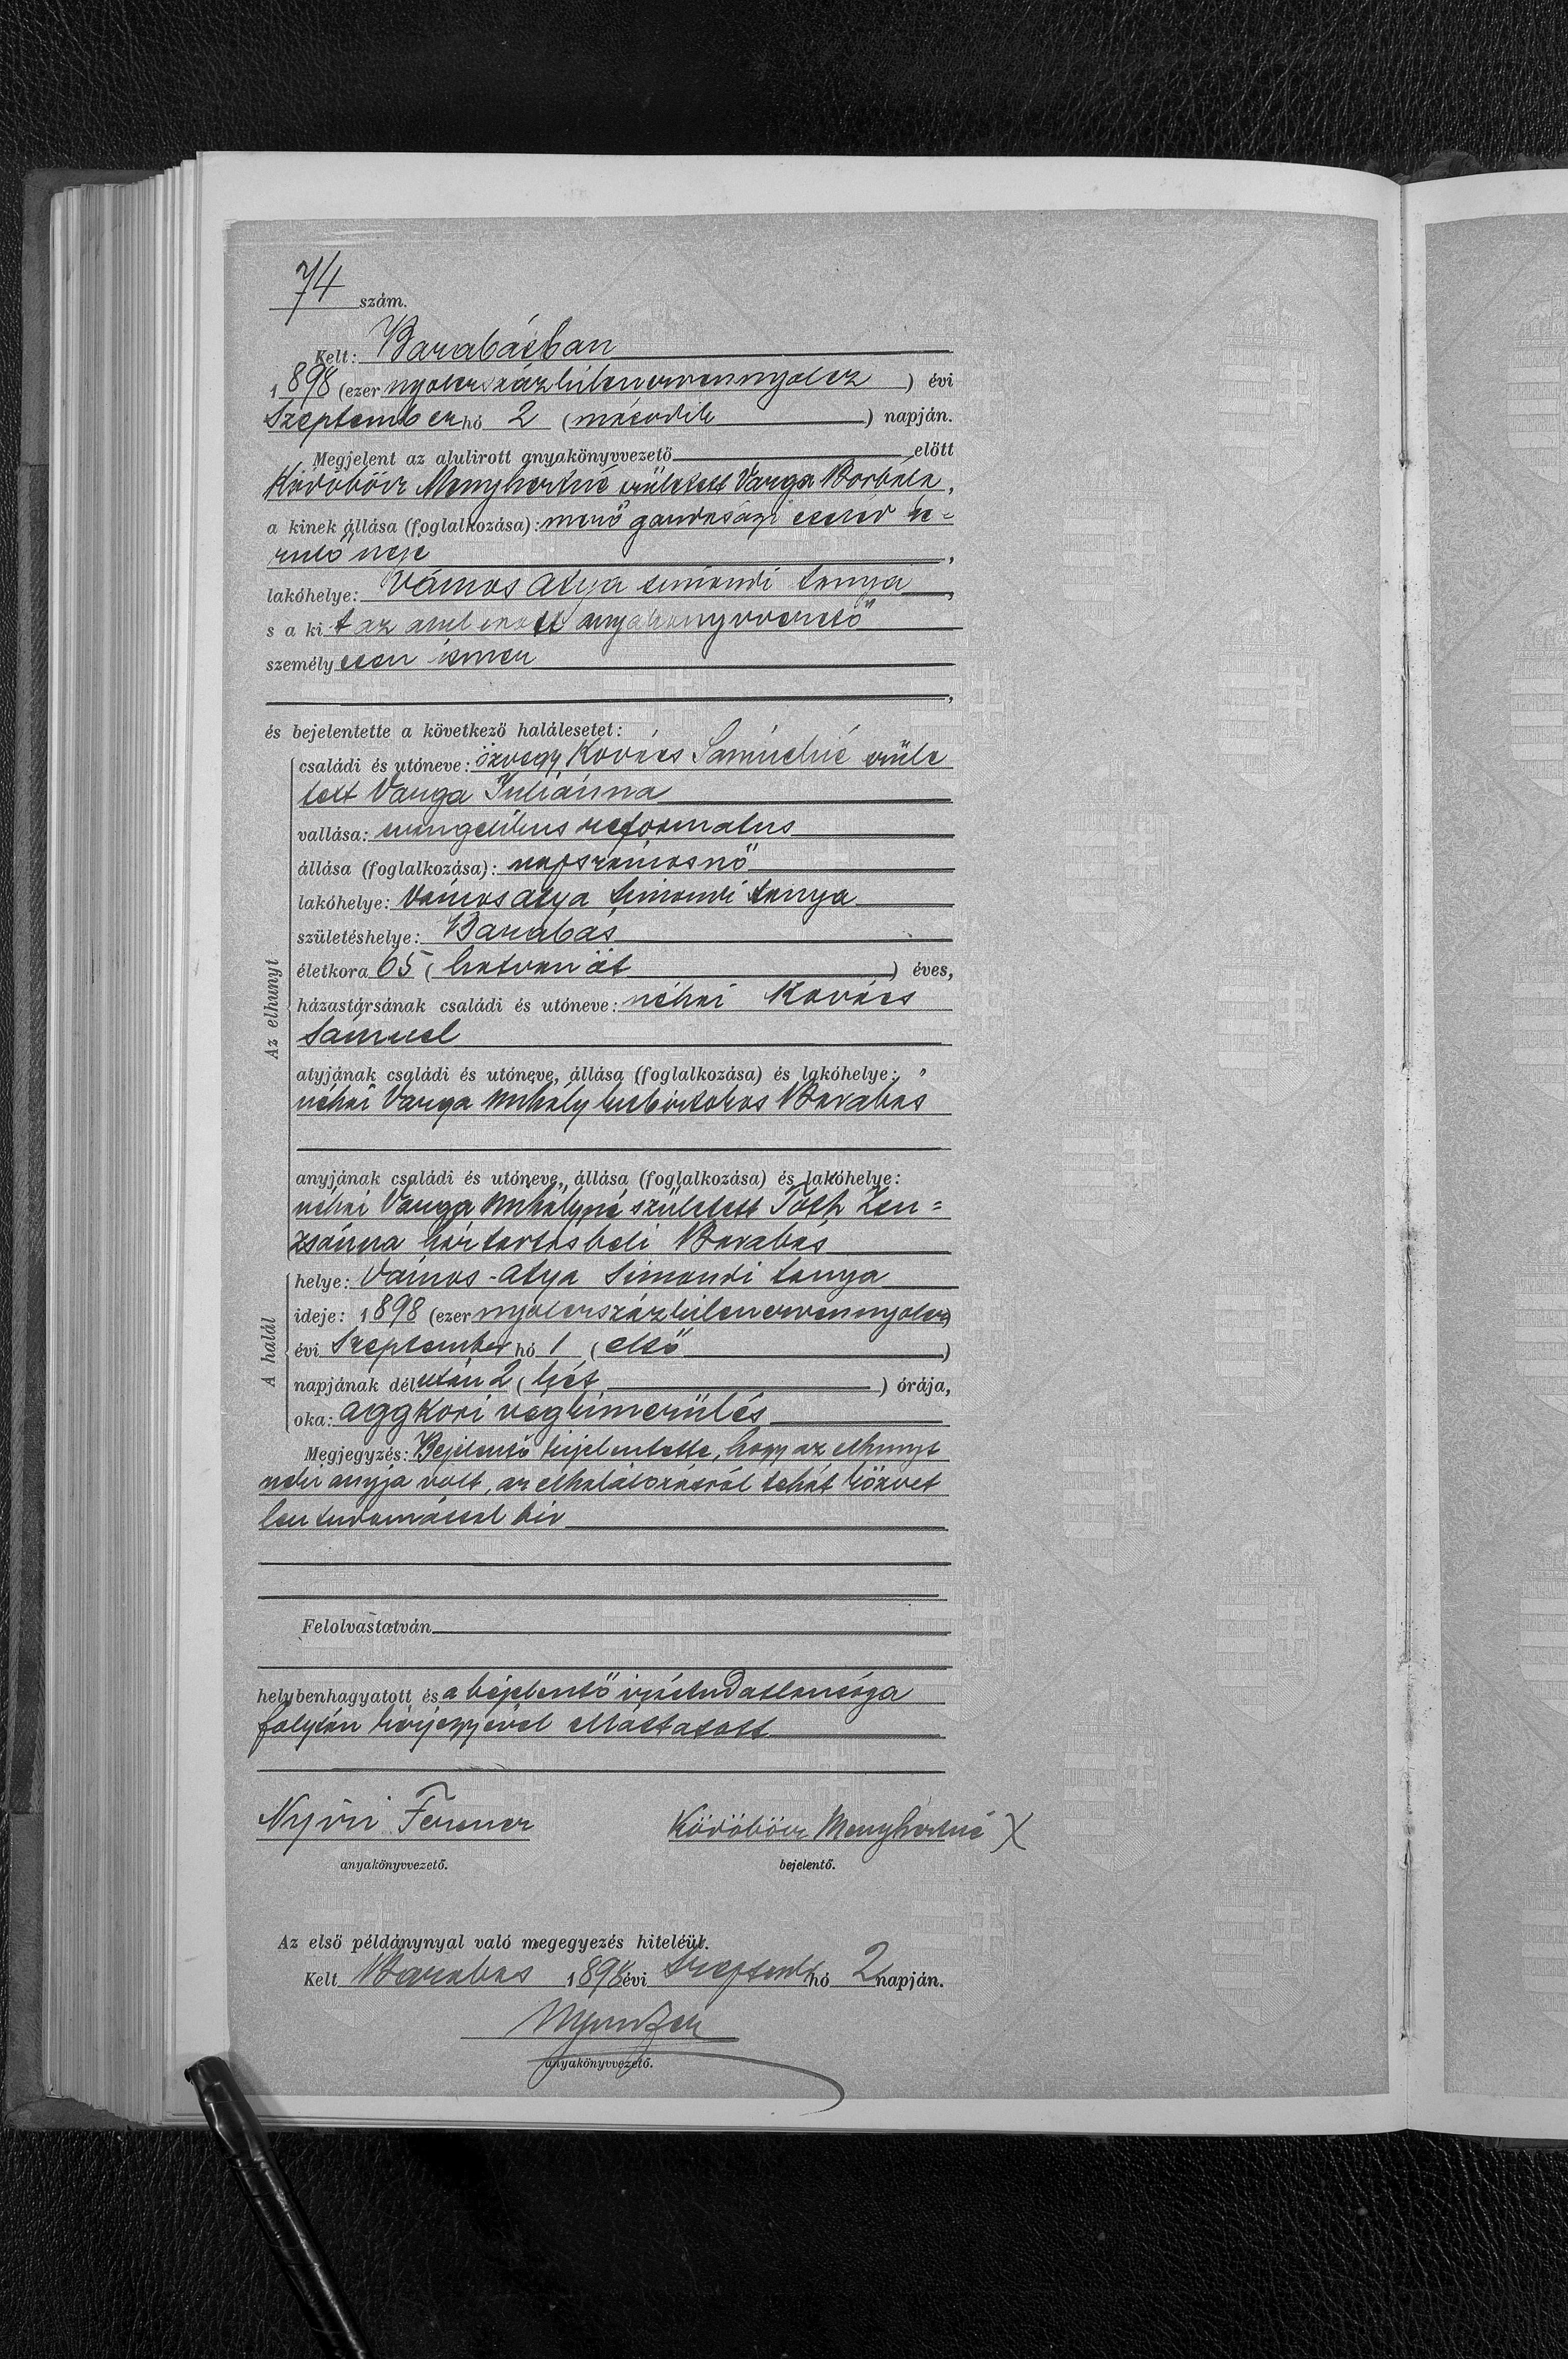 74 szám.
Kelt: Barabásban
1898 (ezer nyolczszázkilenczvennyolcz) évi
Szeptember hó 2 (második) napján.
Megjelent az alulirott anyakönyvvezető előtt
Menyhértné született Varga Borbála,
a kinek állása (foglalkozása): mező gazdasági cseléd
neje,
lakóhelye: Vámos Atya Simondi tanya,
s a ki t az alul irott anyakönyvvezető
személy esen ismer
és bejelentette a következő halálesetet:
Az elhunyt
családi és utóneve: özvegy Kovács Sámuelné szüle
tett Varga Juliánna
vallása: evangelikus reformatus
állása (foglalkozása): napszámosnő
lakóhelye: Vámos Atya Simondi tanya
születéshelye: Barabás
életkora 65 (hatvan öt) éves,
házastársának családi és utóneve: néhai Kovács
Sámuel
atyjának családi és utóneve, állása (foglalkozása) és lakóhelye:
néhai Varga Mihály kisbirtokos Barabás
anyjának családi és utóneve, állása (foglalkozása) és lakóhelye:
néhai Varga Mihályné született Tóth Zsu=
zsánna háztartásbeli Barabás
A halál
helye: Vámos-Atya Simondi tanya
ideje: 1898 (ezer nyolczszázkilenczvennyolcz)
évi Szeptember hó 1 (első)
napjának dél után 2 (két) órája,
oka: aggkori végkimerülés
Megjegyzés: Bejelentő kijelentette, hogy az elhunyt
néki anyja volt, az elhalálozásról tehát közvet
len tudomással bir
Felolvastatván
helybenhagyatott és a bejelentő irástudatlansága
folytán kézjegyével elláttatott
Nyiri Ferencz
anyakönyvvezető.
Menyhértné X
bejelentő.
Az első példánynyal való megegyezés hiteléül.
Kelt Barabás 1898 évi Szeptemb hó 2 napján.
anyakönyvvezető.